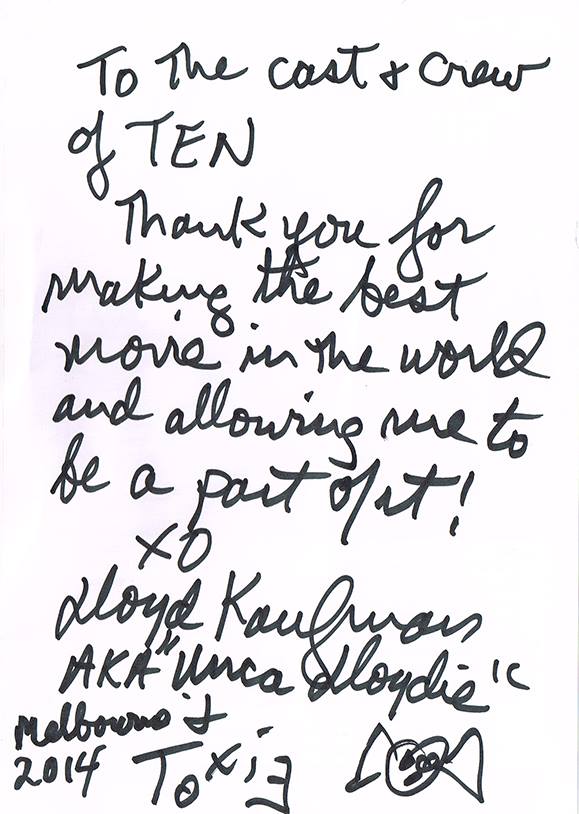 To The cast & Crew
of TEN
Thank you for
making the best
movie in the world
and allowing me to
be a part of it!
XO
Lloyd Kaufman
AKA "Unca Lloydie"
Melbourne &
2014 ToxiE